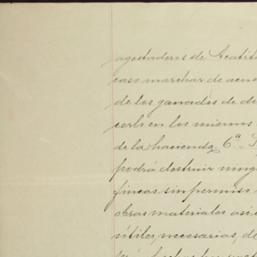 agostaderos de
caso marchar de acue
de los ganados de de
cerlo en los mismos
de la hacienda, 6ª
podrá destruir ning
fincas sin permiso
obras materiales asi
útiles, necesarias, de